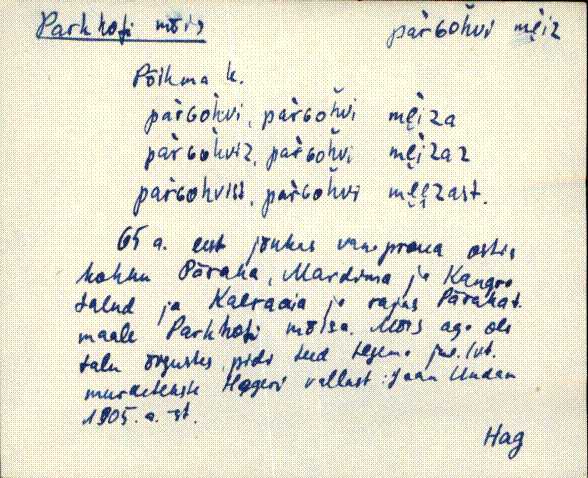 Parkhofi mõis pàrɢoh̆vi mẹiz
Põikma k.
pàrɢoh̆vi, pàrɢoh̆vi mẹiza
pàrɢoh̆viz, pàrɢoh̆vi mẹizaz
pàrɢoh̆vist, pàrɢoh̆vi mẹizast.
65 a. eest jõukas vanaproua ostis
kokku Päraka, Mardima ja Kangro
talud ja Kaeraaia ja rajas Pärakat.
maale Parkhofi mõisa. Mõis aga oli
talu õigustes, pidi teed tegema
murdetekste Hageri vallast: Jaan Undan
1905. a. st.
Hag